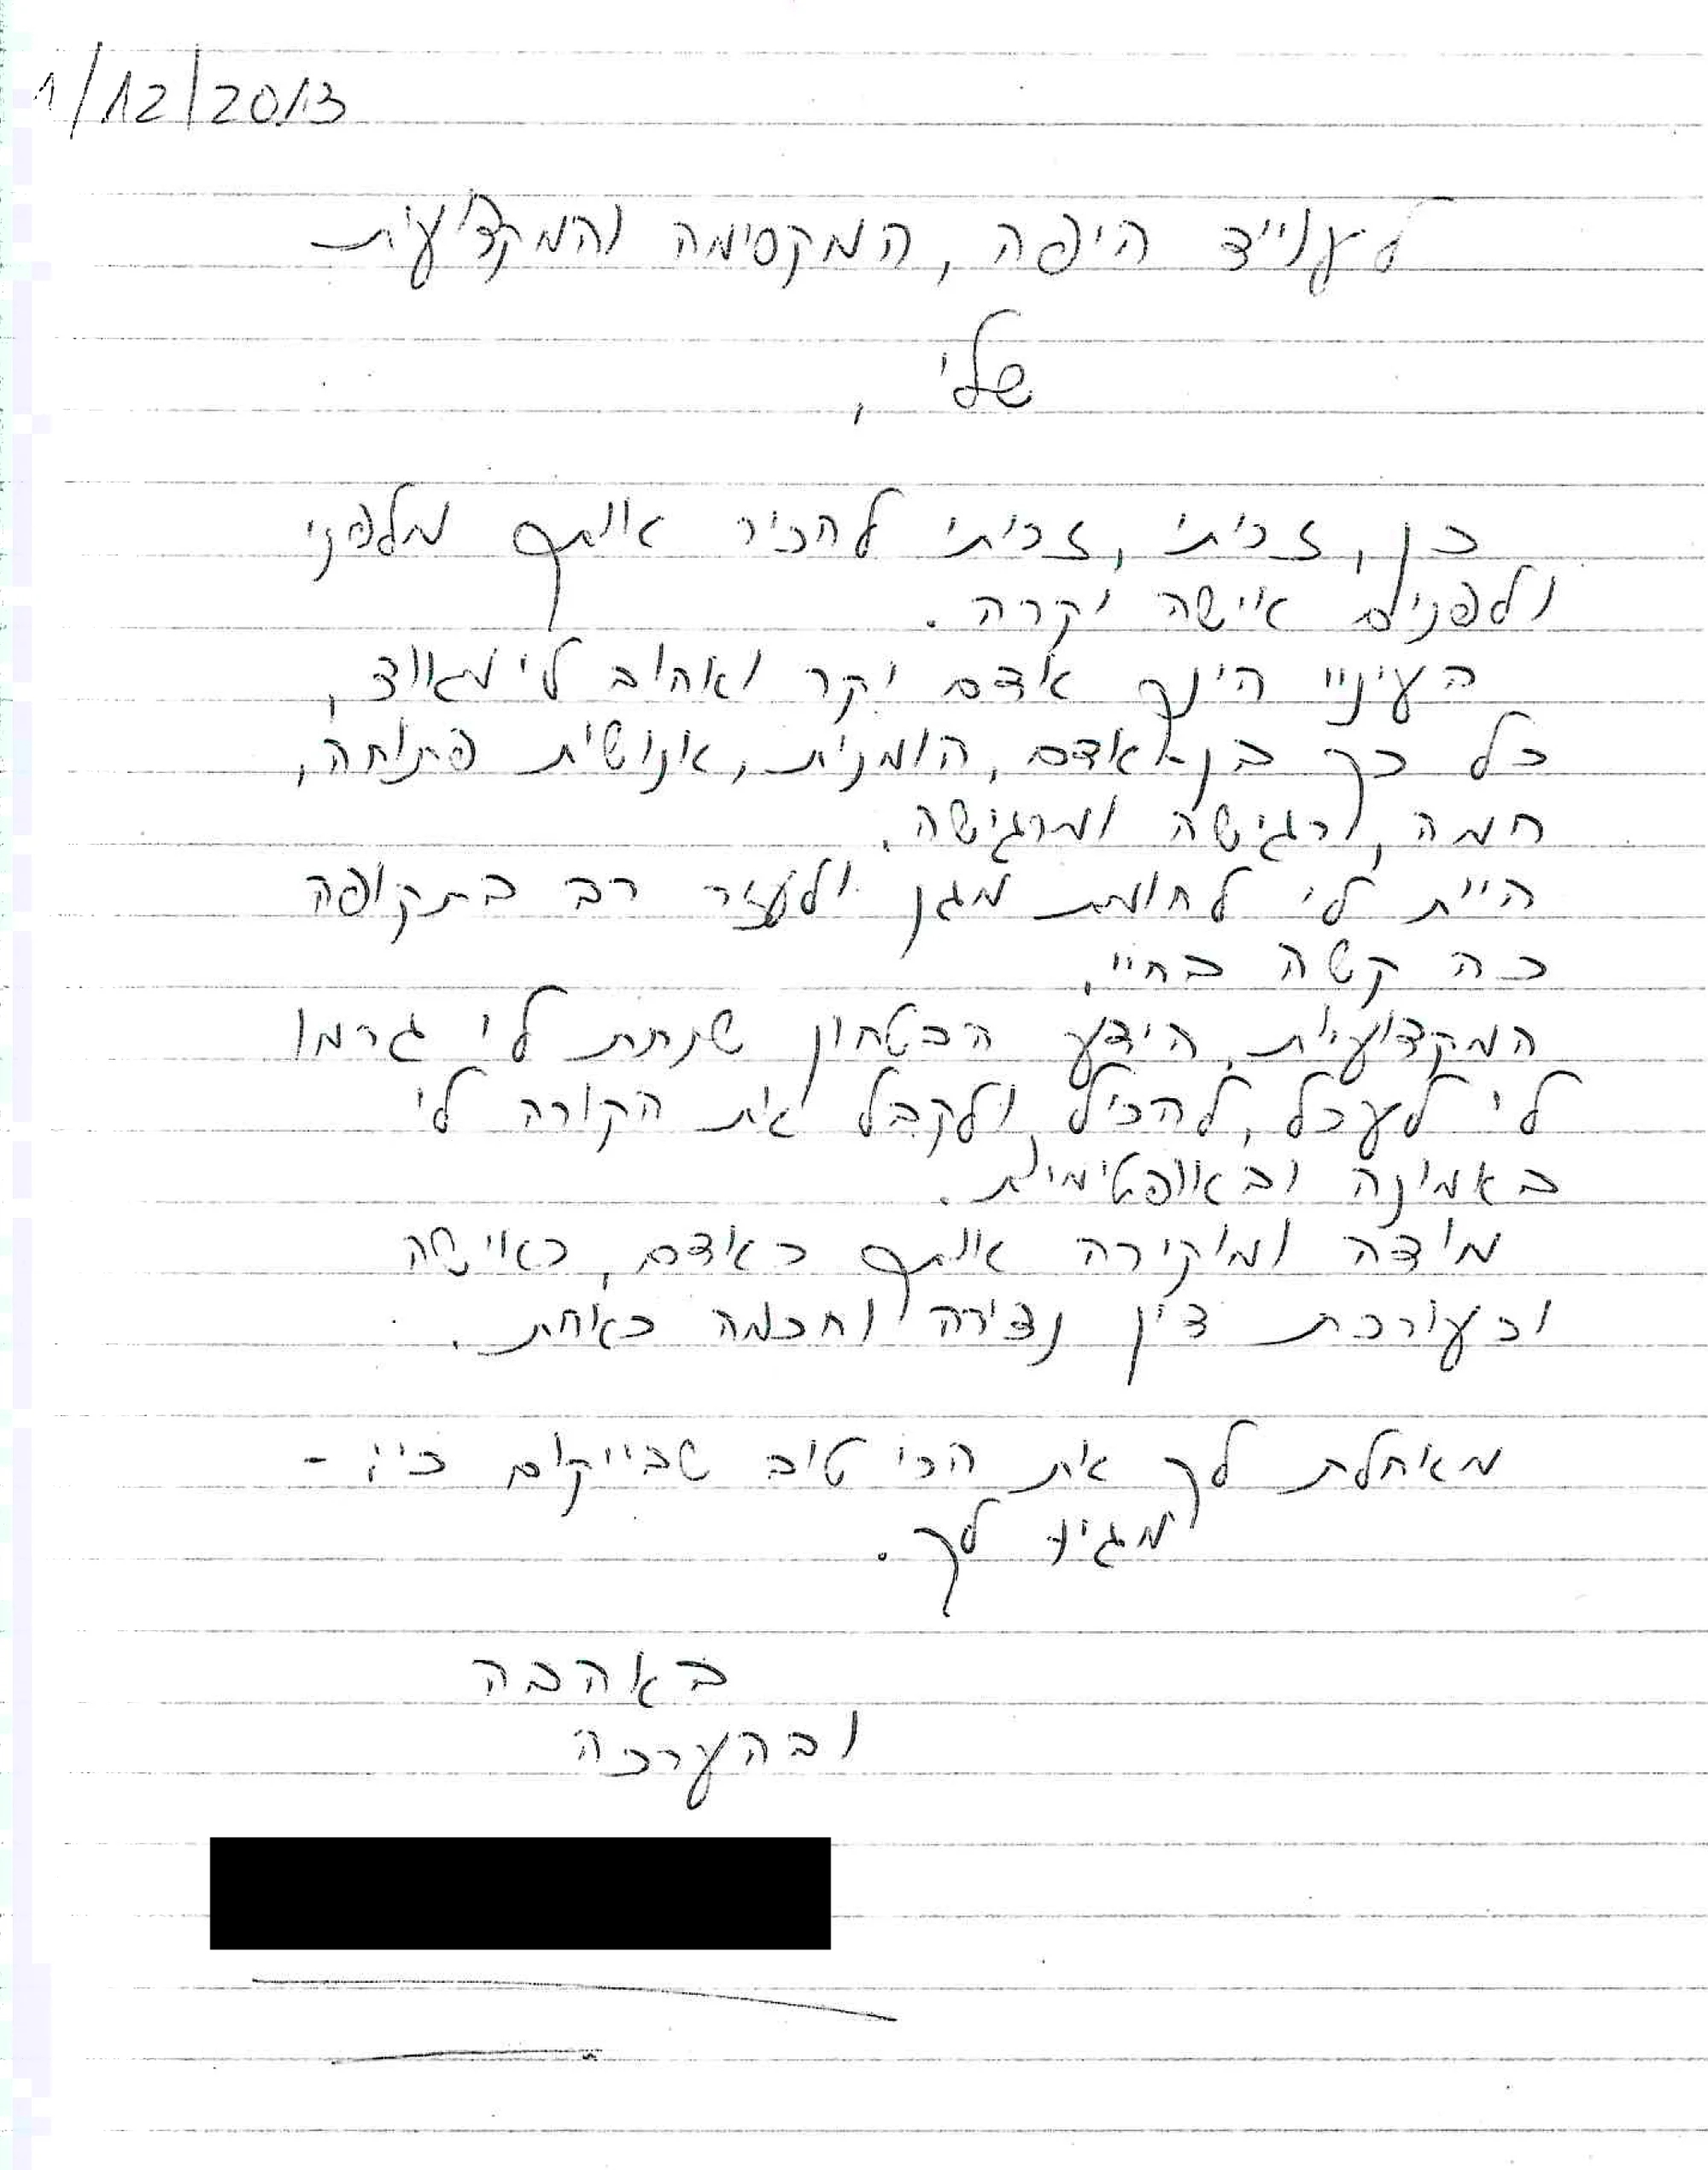 1/12/2013
לעו"ד היפה, המקסימה והמקצועית
שלי,
כן, זכיתי, זכיתי להכיר אותך מלפני
ולפנים אישה יקרה.
בעיניי הינך אדם יקר ואהוב לי מאוד,
כל כך בן אדם, הומנית, אנושית פתוחה,
חמה, רגישה ומרגישה.
היית לי לחומת מגן ולעזר רב בתקופה
כה קשה בחיי.
המקצועיות, הידע, הבטחון שנתת לי גרמו
לי לעכל, להכיל ולקבל את הקורה לי
באמונה ובאופטימיות.
מודה ומוקירה אותך כאדם, כאישה
וכעורכת דין נדירה וחכמה כאחת.
מאחלת לך את הכי טוב שבייקום כי -
מגיע לך.
באהבה
ובהערכה